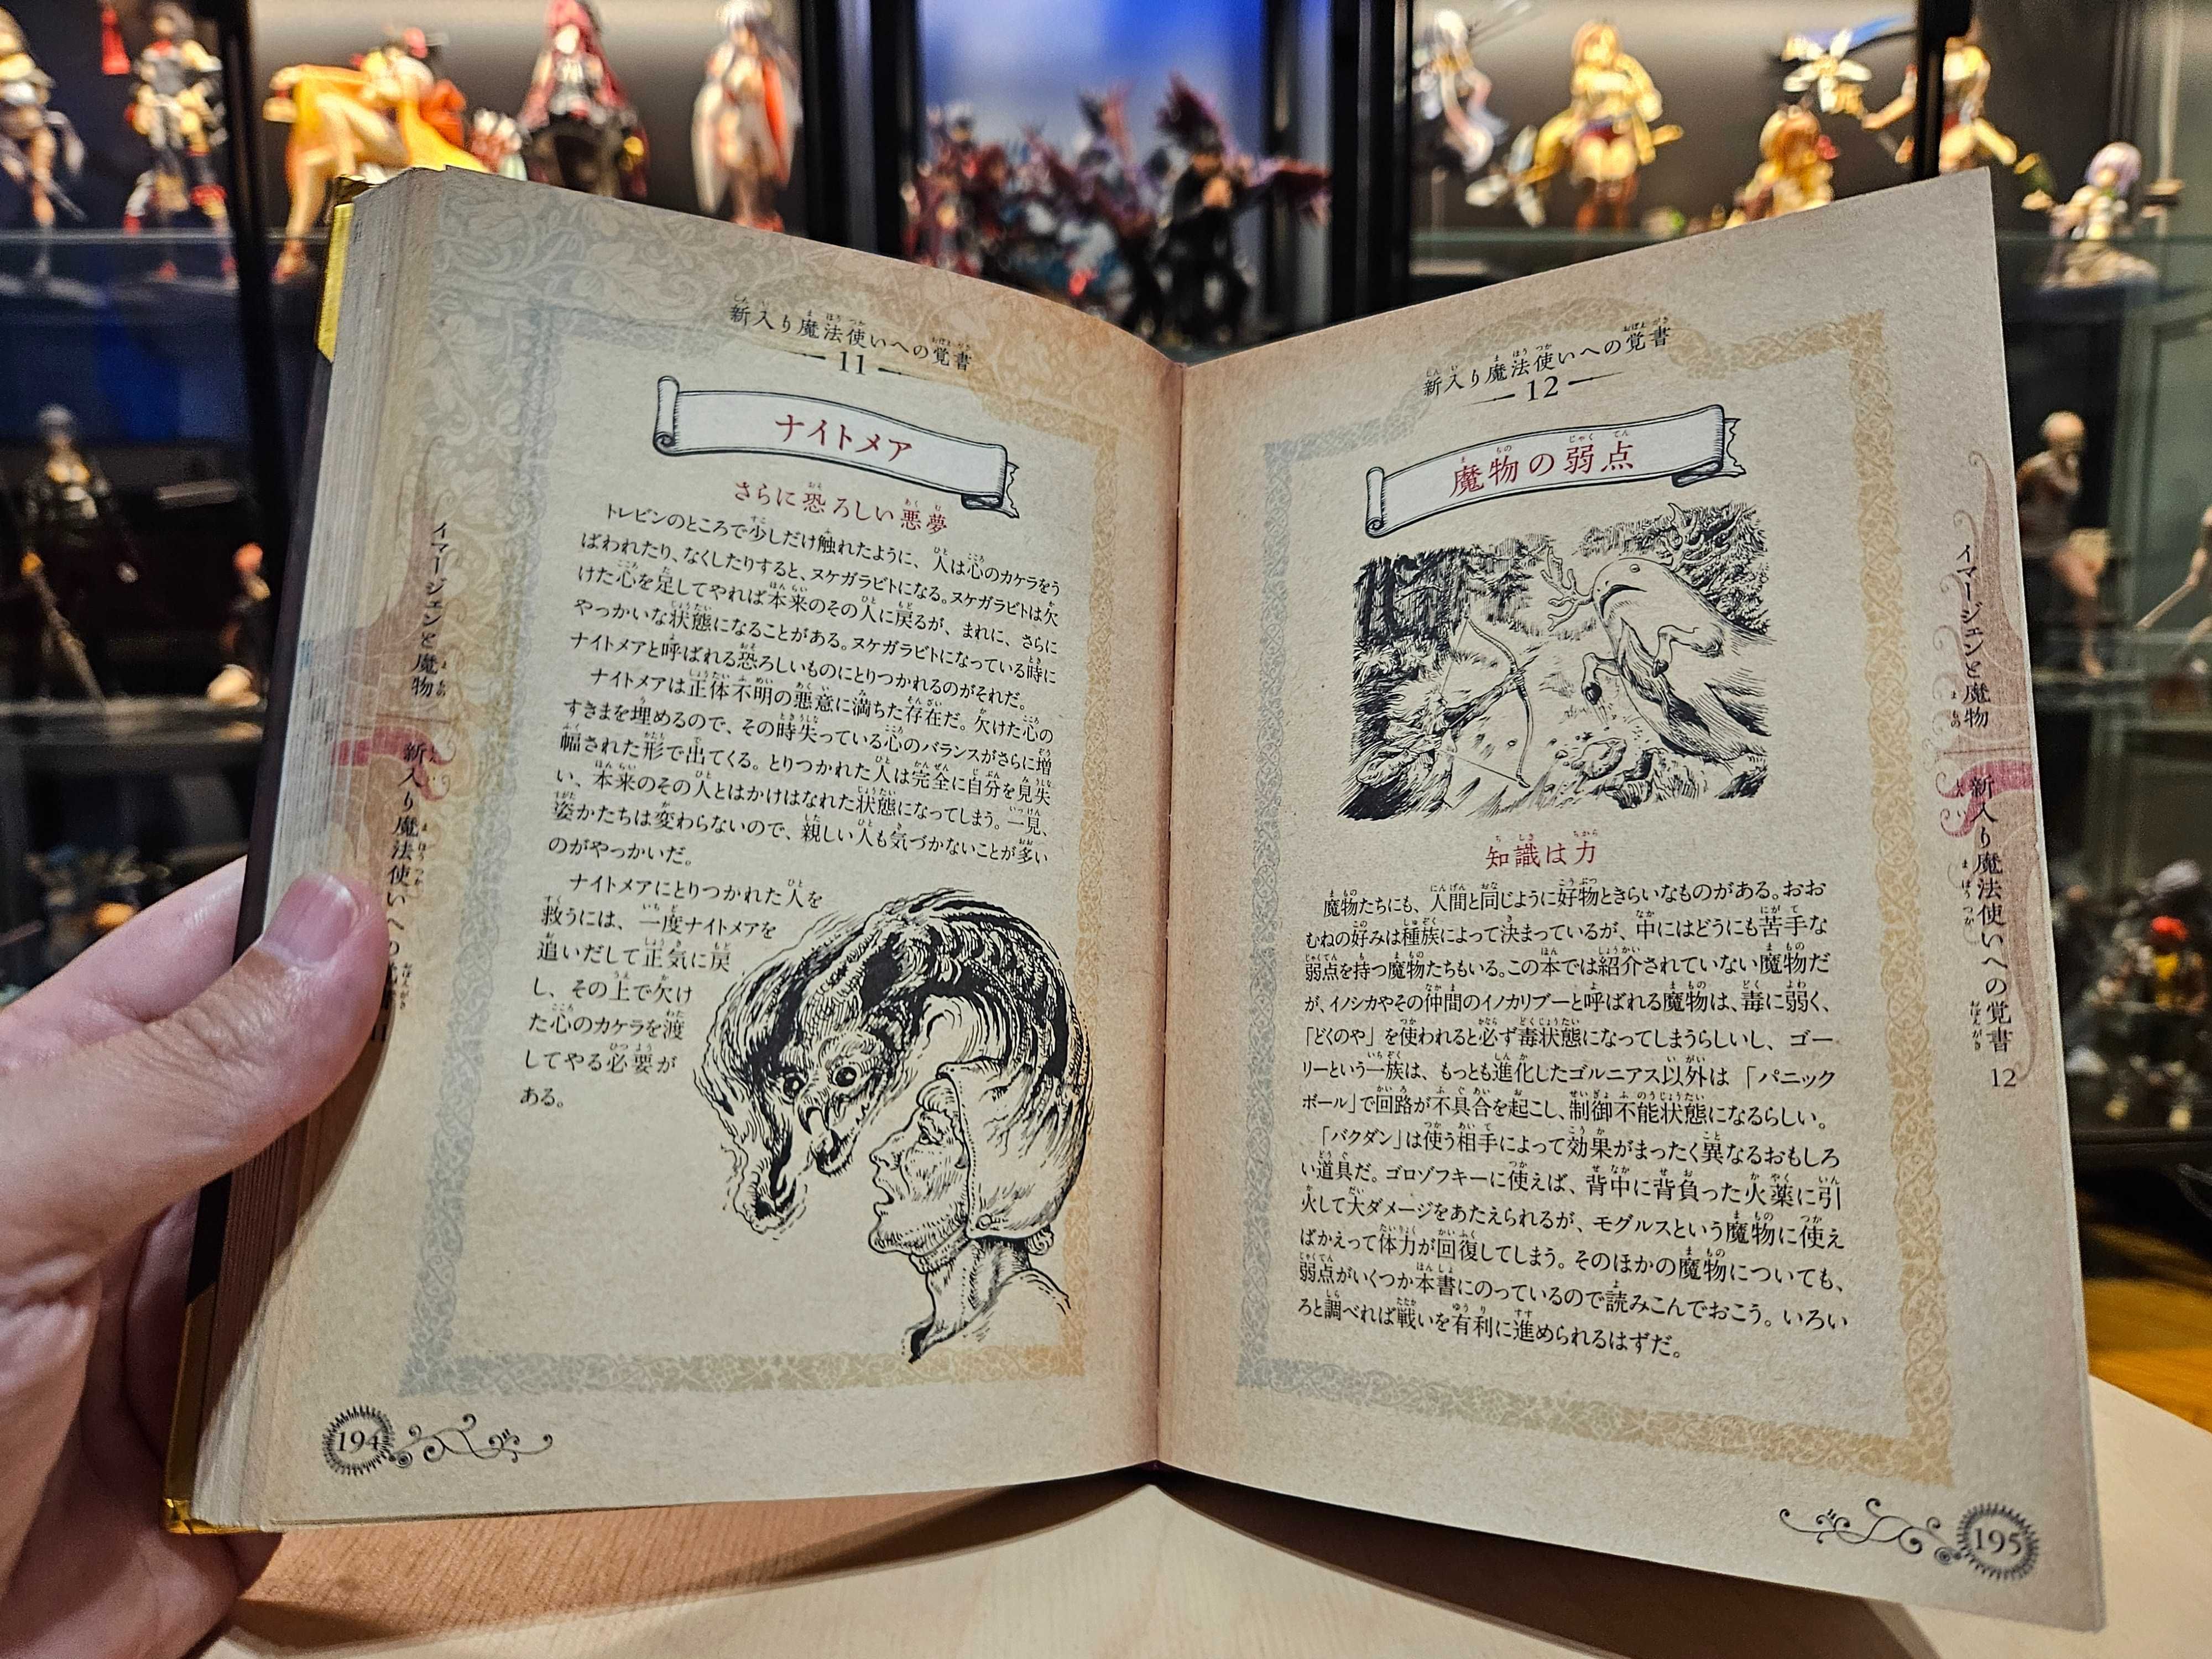 新入り魔法使いへの覚書
11
ナイトメア
さらに恐ろしい悪夢
トレビンのところで少しだけ触れたように、人は心のカケラをう
ばわれたり、なくしたりすると、ヌケガラビトになる。ヌケガラビトは欠
けた心を足してやれば本来のその人に戻るが、まれに、さらに
やっかいな状態になることがある。ヌケガラビトになっている時に
ナイトメアと呼ばれる恐ろしいものにとりつかれるのがそれだ。
ナイトメアは正体不明の悪意に満ちた存在だ。欠けた心の
すきまを埋めるので、その時失っている心のバランスがさらに増
幅された形で出てくる。とりつかれた人は完全に自分を見失
い、本来のその人とはかけはなれた状態になってしまう。一見、
姿かたちは変わらないので、親しい人も気づかないことが多い
のがやっかいだ。
ナイトメアにとりつかれた人を
救うには、一度ナイトメアを
追いだして正気に戻
し、その上で欠け
た心のカケラを渡
してやる必要が
ある。
イマージェンと魔物
新入り魔法使いへの
11
194
新入り魔法使いへの覚書
12
魔物の弱点
知識は力
魔物たちにも、人間と同じように好物ときらいなものがある。おお
むねの好みは種族によって決まっているが、中にはどうにも苦手な
弱点を持つ魔物たちもいる。この本では紹介されていない魔物だ
が、イノシカやその仲間のイノカリブーと呼ばれる魔物は、毒に弱く、
「どくのや」を使われると必ず毒状態になってしまうらしいし、ゴー
リーという一族は、もっとも進化したゴルニアス以外は「パニック
ボール」で回路が不具合を起こし、制御不能状態になるらしい。
「バクダン」は使う相手によって効果がまったく異なるおもしろ
い道具だ。ゴロゾフキーに使えば、背中に背負った火薬に引
火して大ダメージをあたえられるが、モグルスという魔物に使え
ばかえって体力が回復してしまう。そのほかの魔物についても、
弱点がいくつか本書にのっているので読みこんでおこう。いろい
ろと調べれば戦いを有利に進められるはずだ。
イマージェンと魔物
新入り魔法使いへの覚書
12
195